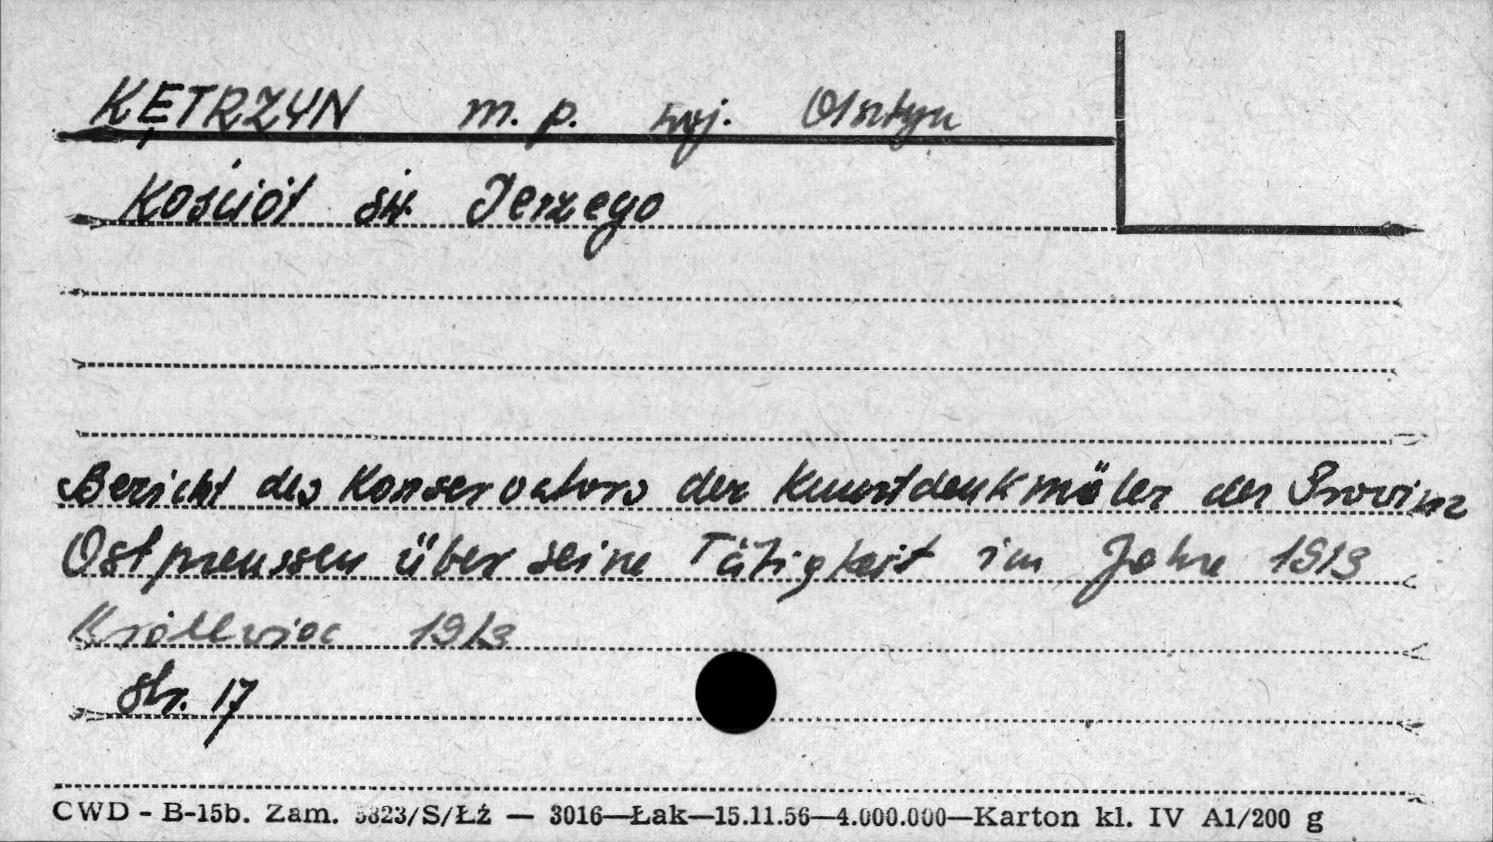 KĘTRZYN m. p. woj. Olsztyn
Kościół św. Jerzego
Bericht des Konservators der Kunstdenkmäler der Provinz
Ostpreussen über seine Tätigkeit im Jahre 1913
Królewiec 1913
str. 17
CWD - B-15b. Zam. 5823/S/Łź — 3016—Łak—15.11.56—4.000.000—Karton kl. IV A1/200 g